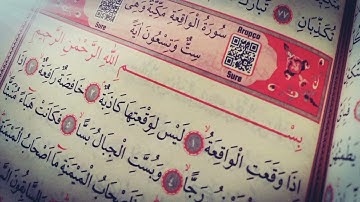 تُكَذِّبَانِ ٧٧ تَبَارَكَ
سُورَةُ الْوَاقِعَةِ مَكِّيَّةٌ وَهِيَ
سِتٌّ وَتِسْعُونَ اٰيَةً
Arapça
Sure
Sure
بِسْمِ اللّٰهِ الرَّحْمٰنِ الرَّحِيمِ
اِذَا وَقَعَتِ الْوَاقِعَةُ ١ لَيْسَ لِوَقْعَتِهَا كَاذِبَةٌ ٢ خَافِضَةٌ رَافِعَةٌ ٣ اِذَا
رَجًّا ٤ وَبُسَّتِ الْجِبَالُ بَسًّا ٥ فَكَانَتْ هَبَاءً مُنْبَثًّا
الْمَيْمَنَةِ مَا اَصْحَابُ الْمَيْمَنَةِ